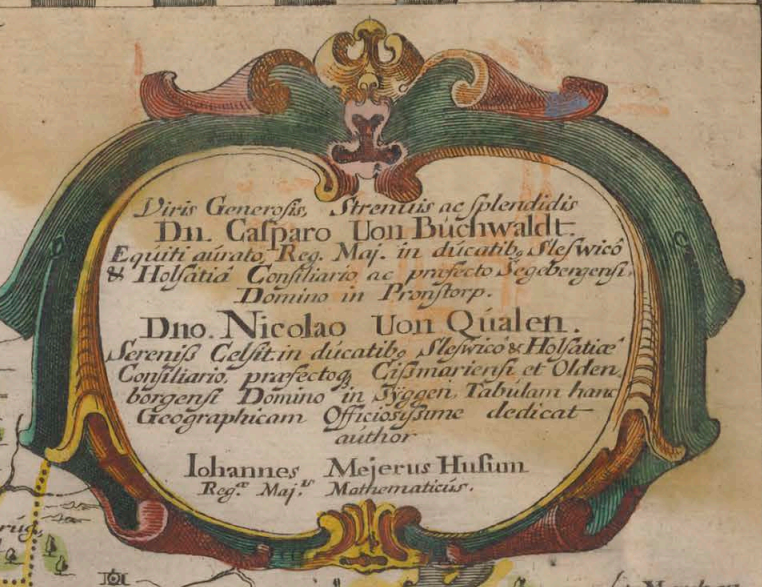 Viris Generosis, Strenuis ac splendidis
Dn. Casparo Von Buchwaldt
Equiti aurato, Reg. Maj. in ducatibq Sleswicô
& Holsatiâ Consiliario, ac præfecto Segebergensi,
Domino in Pronstorp.
Dno. Nicolao Von Qualen.
Sereniss Celsit. in ducatibq Sleswicô & Holsatiæ
Consiliario, præfectoq Cismariensi et Olden
borgensi Domino in Syggen Tabulam hanc
Geographicam Officiosissime dedicat
author
Iohannes Mejerus Husum
Reg.æ Maj.ts Mathematicus.